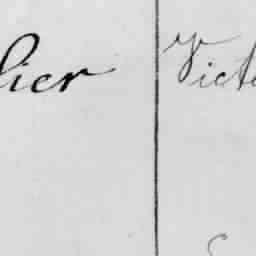 lier Victo